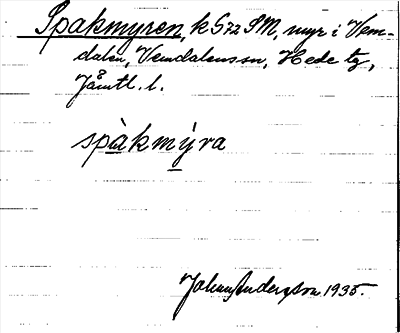 Spakmyren, k S72 SM, myr i Vem-
dalen, Vemdalens sn, Hede tg,
Jämtl. l.
spàkmýra
Johan Anderzson 1935.